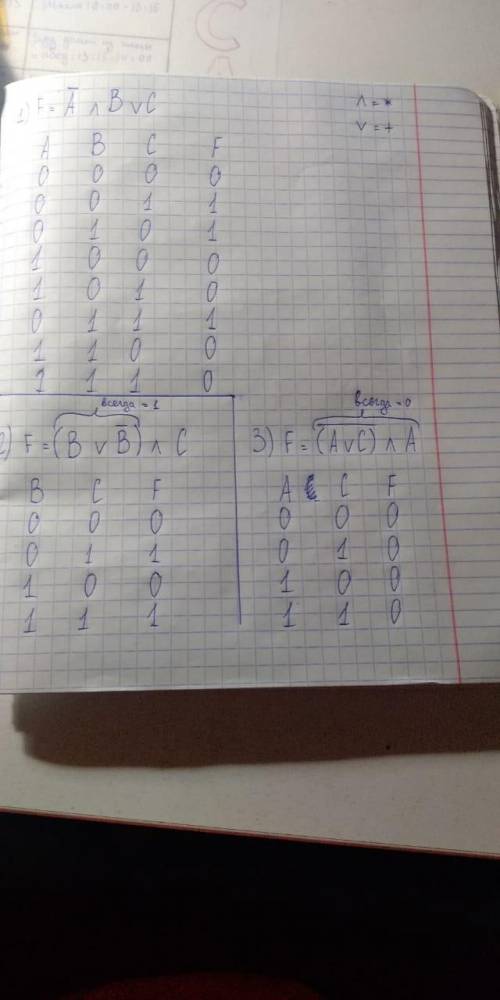 1) F = A̅ ∧ B ∨ C
∧ = *
∨ = +
A B C F
0 0 0 0
0 0 1 1
0 1 0 1
1 0 0 0
1 0 1 0
0 1 1 1
1 1 0 0
1 1 1 0
всегда = 1
2) F = (B ∨ B̅) ∧ C
B C F
0 0 0
0 1 1
1 0 0
1 1 1
всегда = 0
3) F = (A̅∨C̅) ∧ A̅
A C F
0 0 0
0 1 0
1 0 0
1 1 0